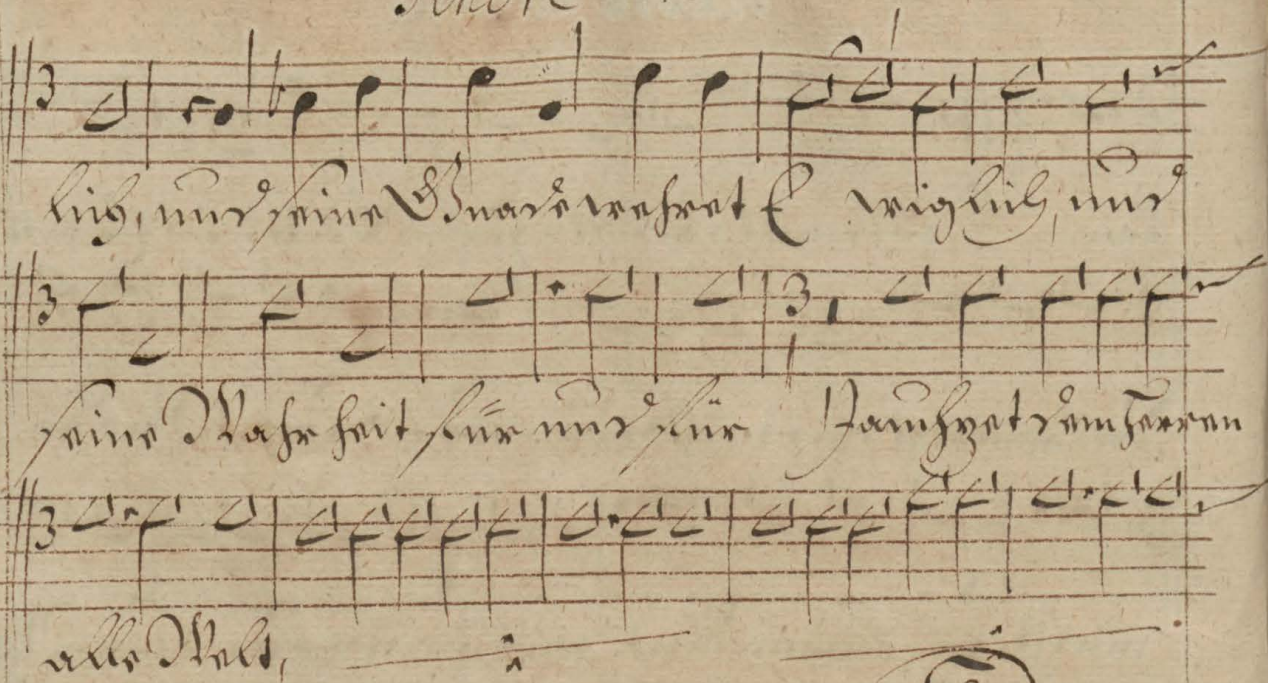 lich, und seine Gnade wehret E wiglich, und
seine Wahrheit für und für Jauchzet dem Herren
alle Welt,